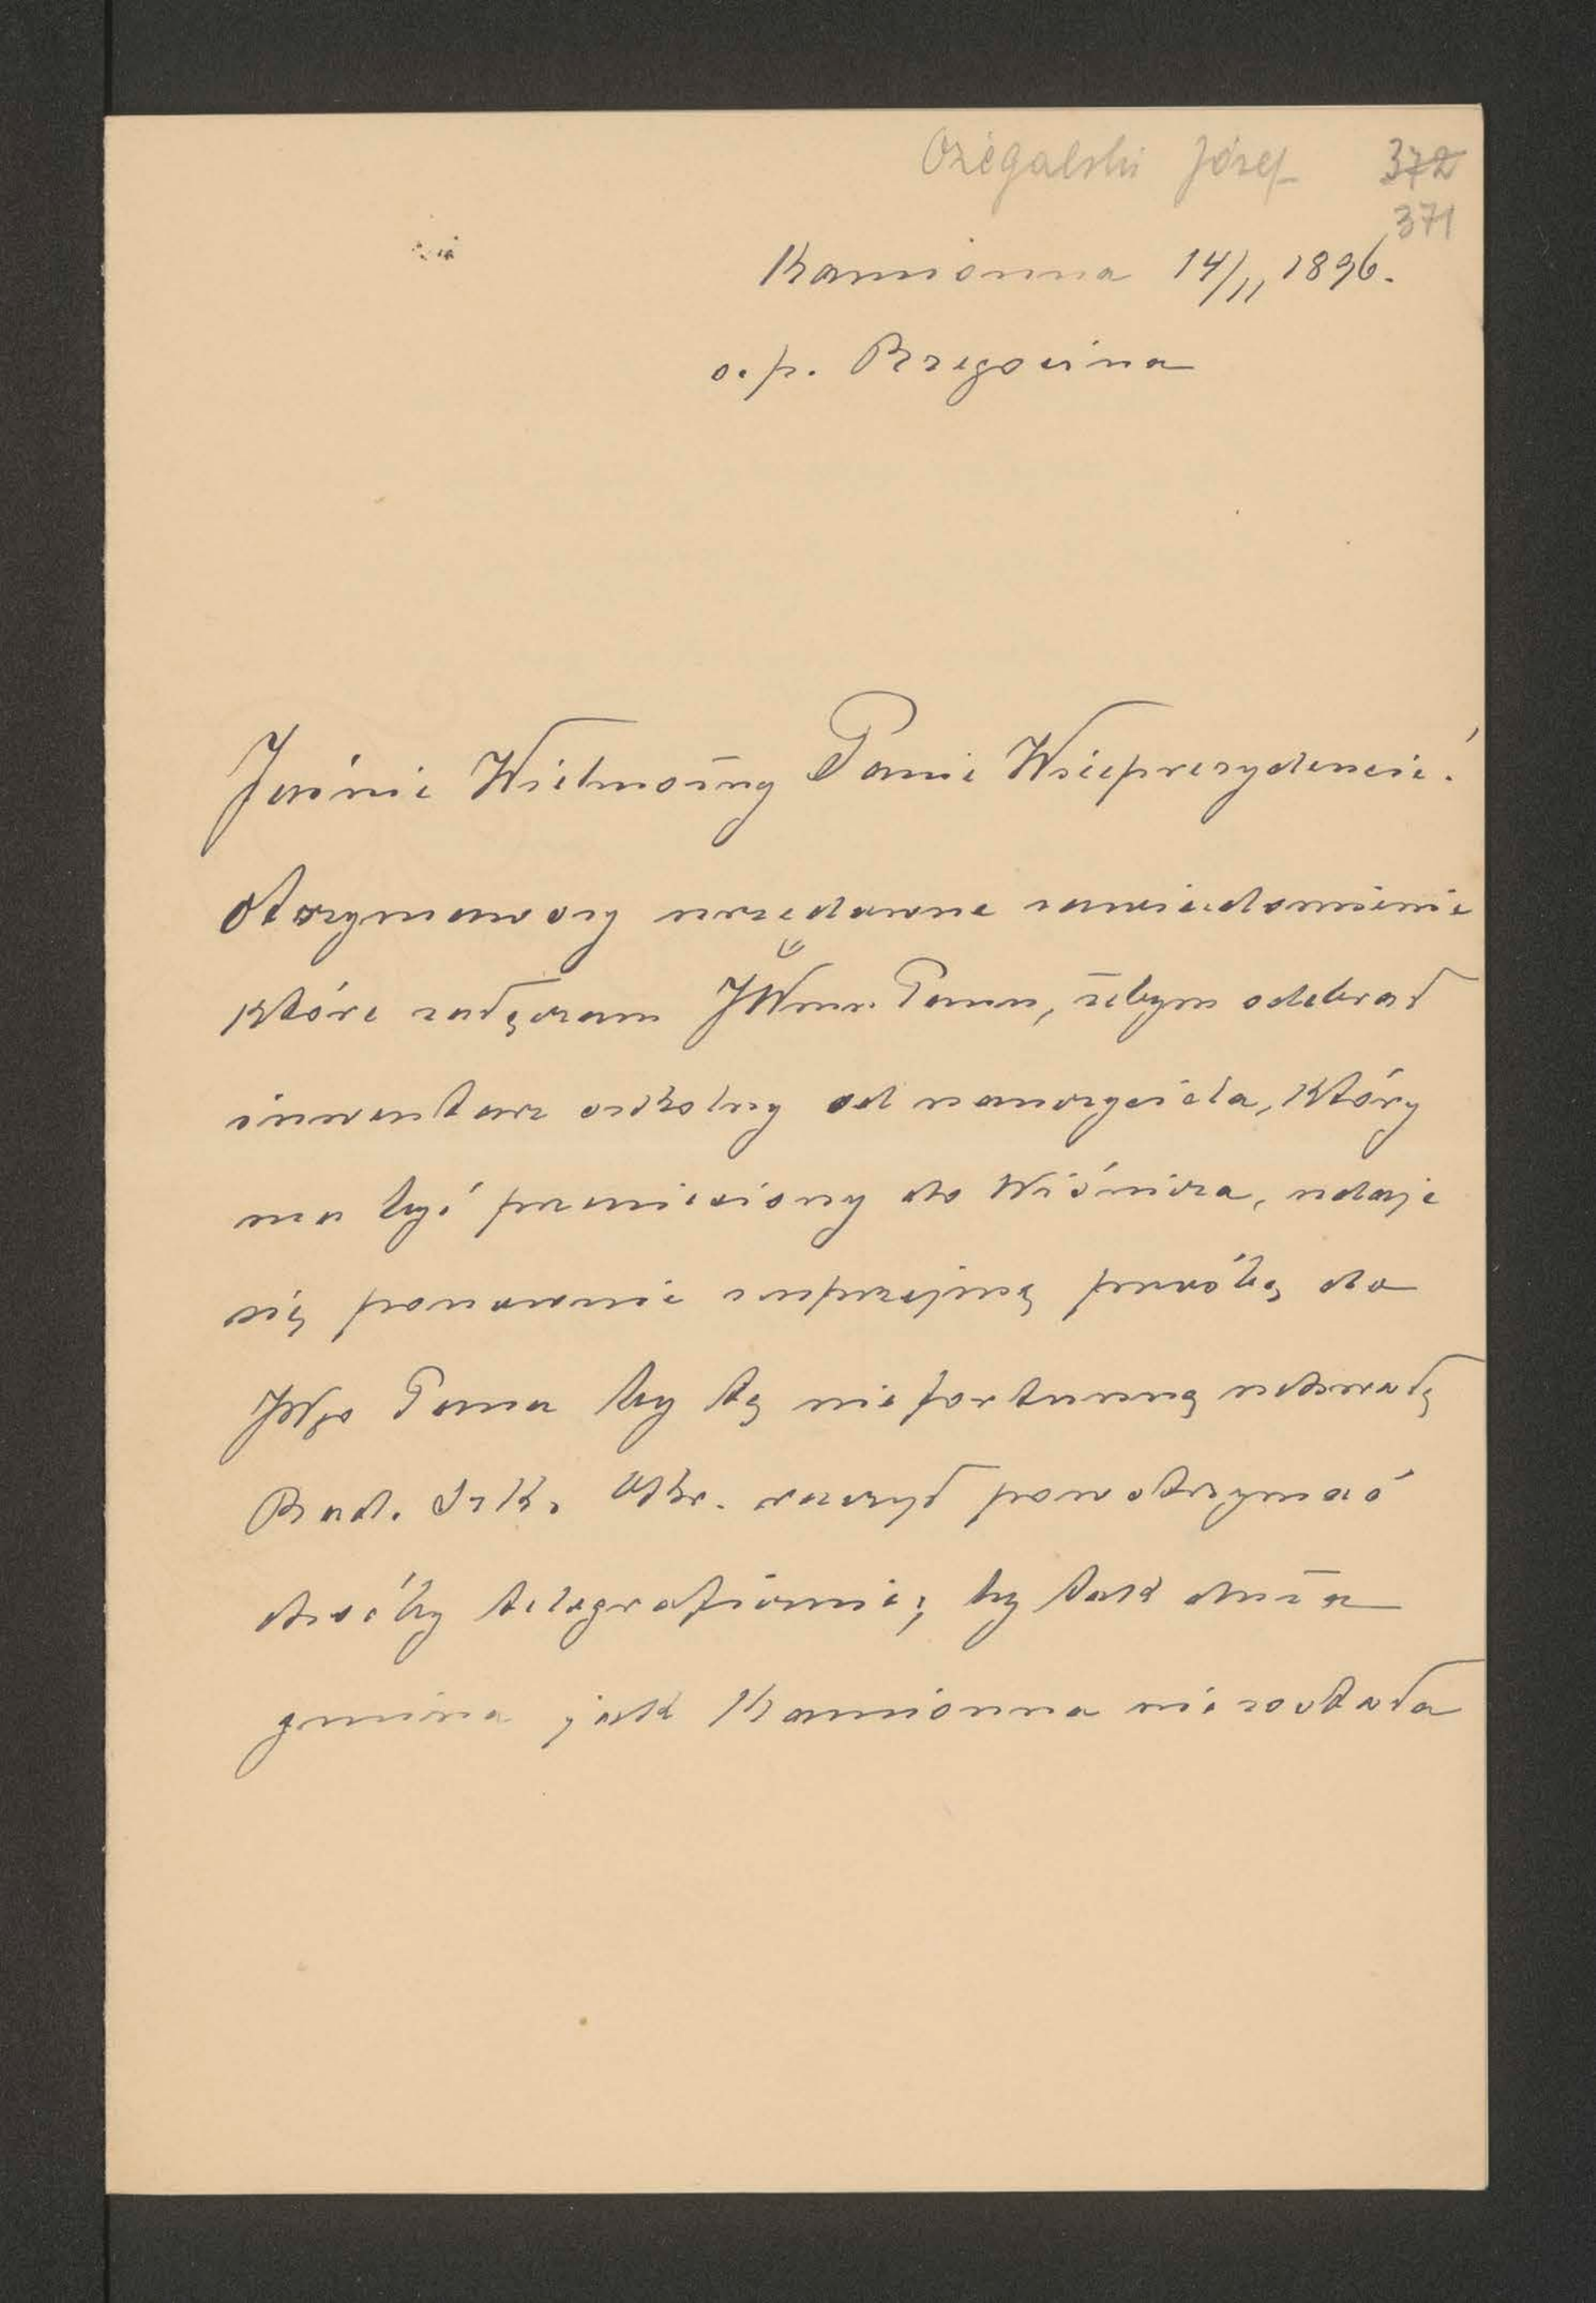 Ożegalski Józef 372
371
Kamionna 14/11 1896.
o. p. Rzegocina
Jaśnie Wielmożny Panie Wiceprezydencie!
Otrzymawszy urzędowne zawiadomienie
które załączam JWmu Panu, żebym odebrał
inwentarz szkolny od nauczyciela, który
ma być przeniesiony do Wiśnicza, udaje
się ponownie z uprzejmą prośbą do
JWgo Pana by tę niefortunną uchwałę
Rad. Szk. Okr. raczył powstrzymać
choćby telegraficznie; by tak duża
gmina jak Kamionna nie została